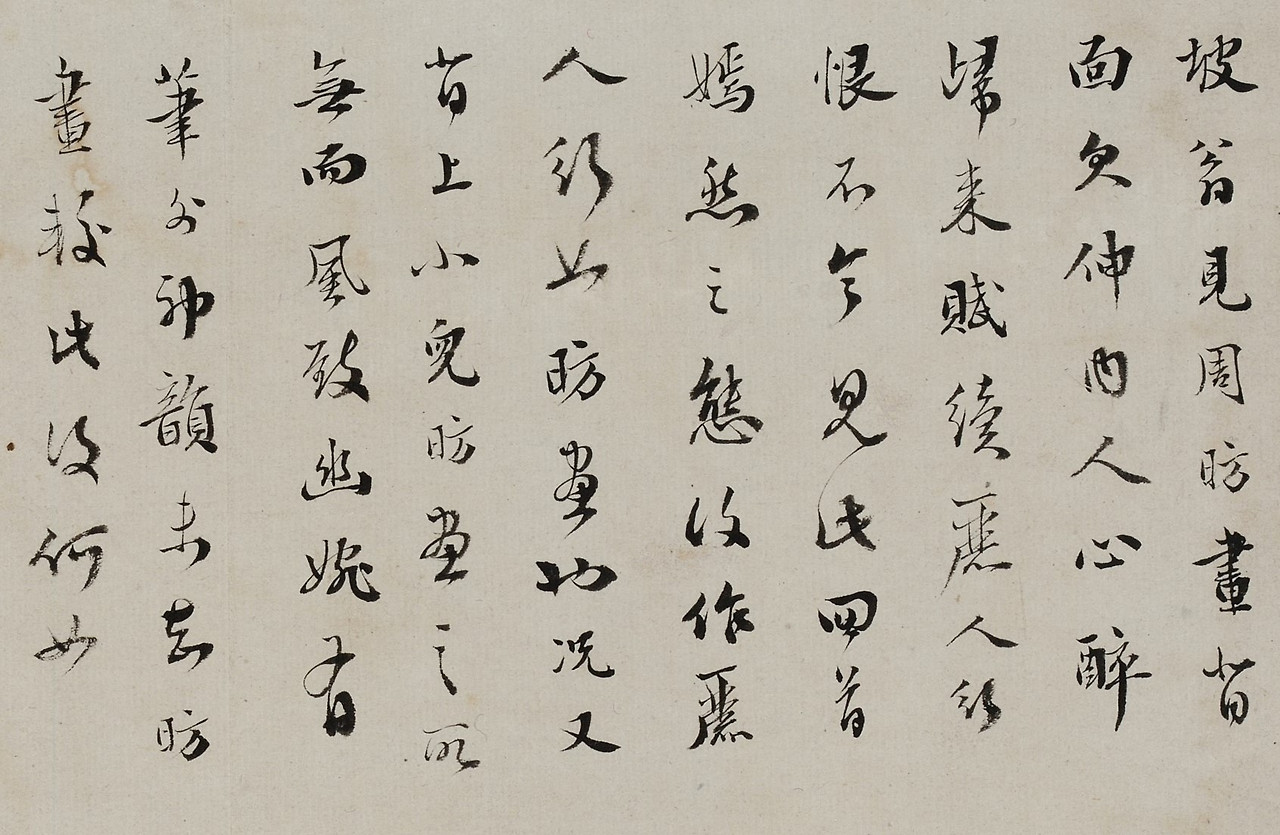 坡翁見周昉畫背
面欠伸內人心醉
歸來賦續麗人行
恨不令見此回首
嫣然之態復作麗
人行如昉畫也況又
背上小兒昉畫之所
無而風致幽婉有
筆外神韻未知昉
畫較此復何如